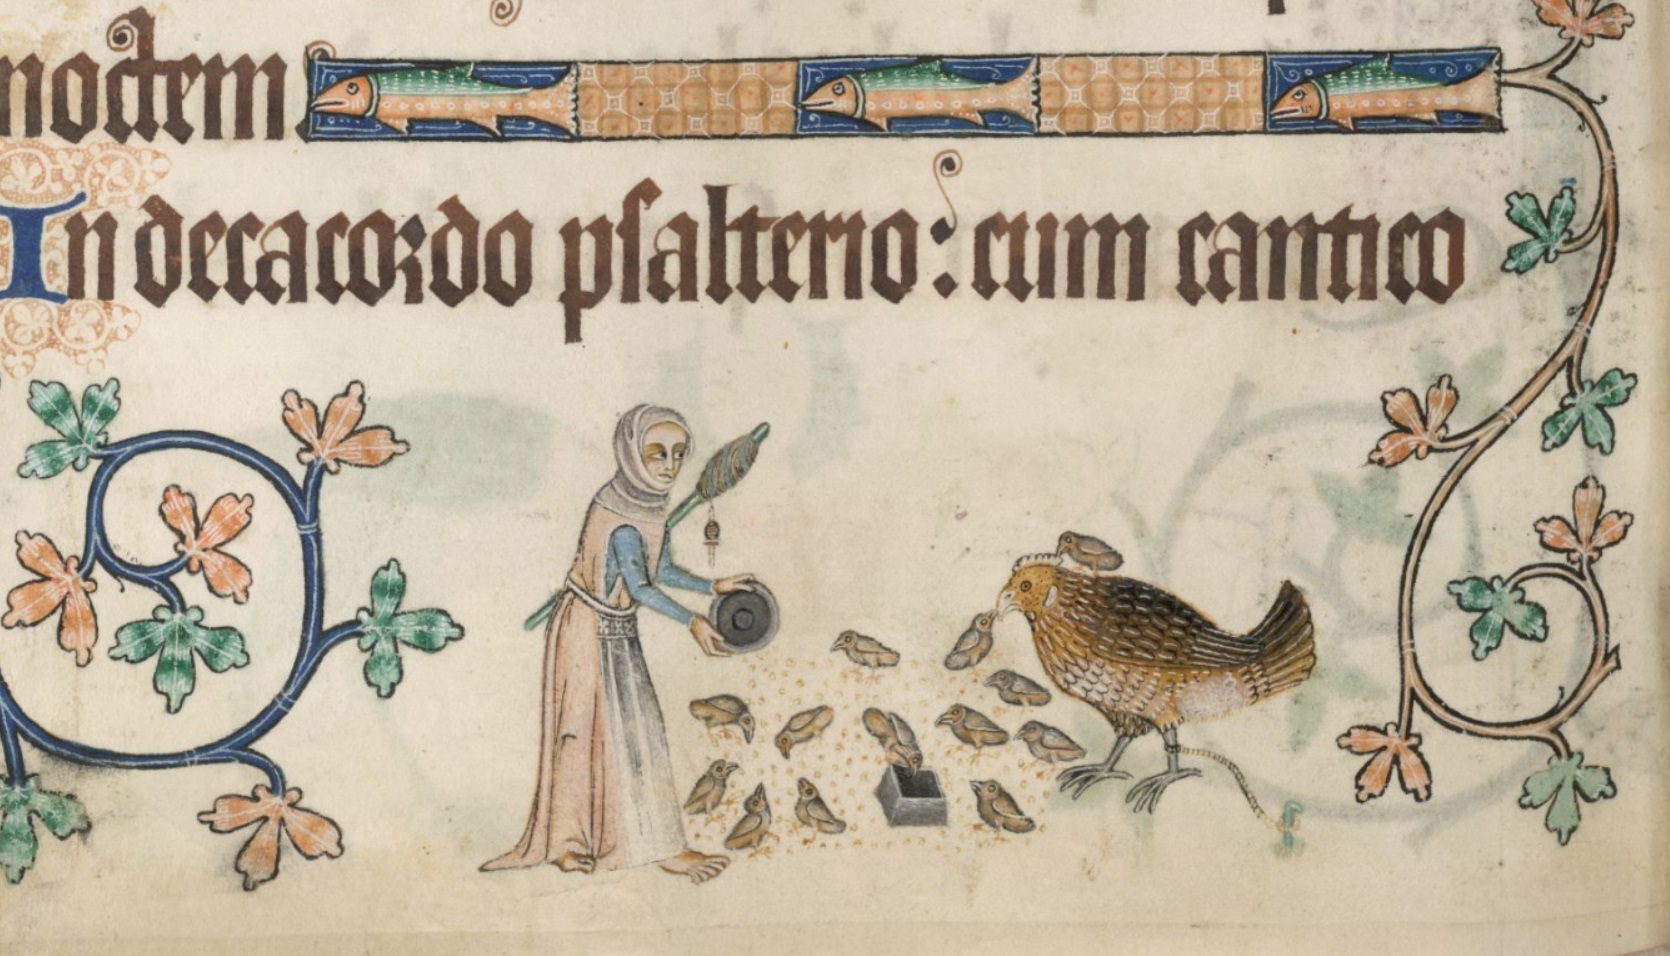 noctem
In decacordo psalterio : cum cantico